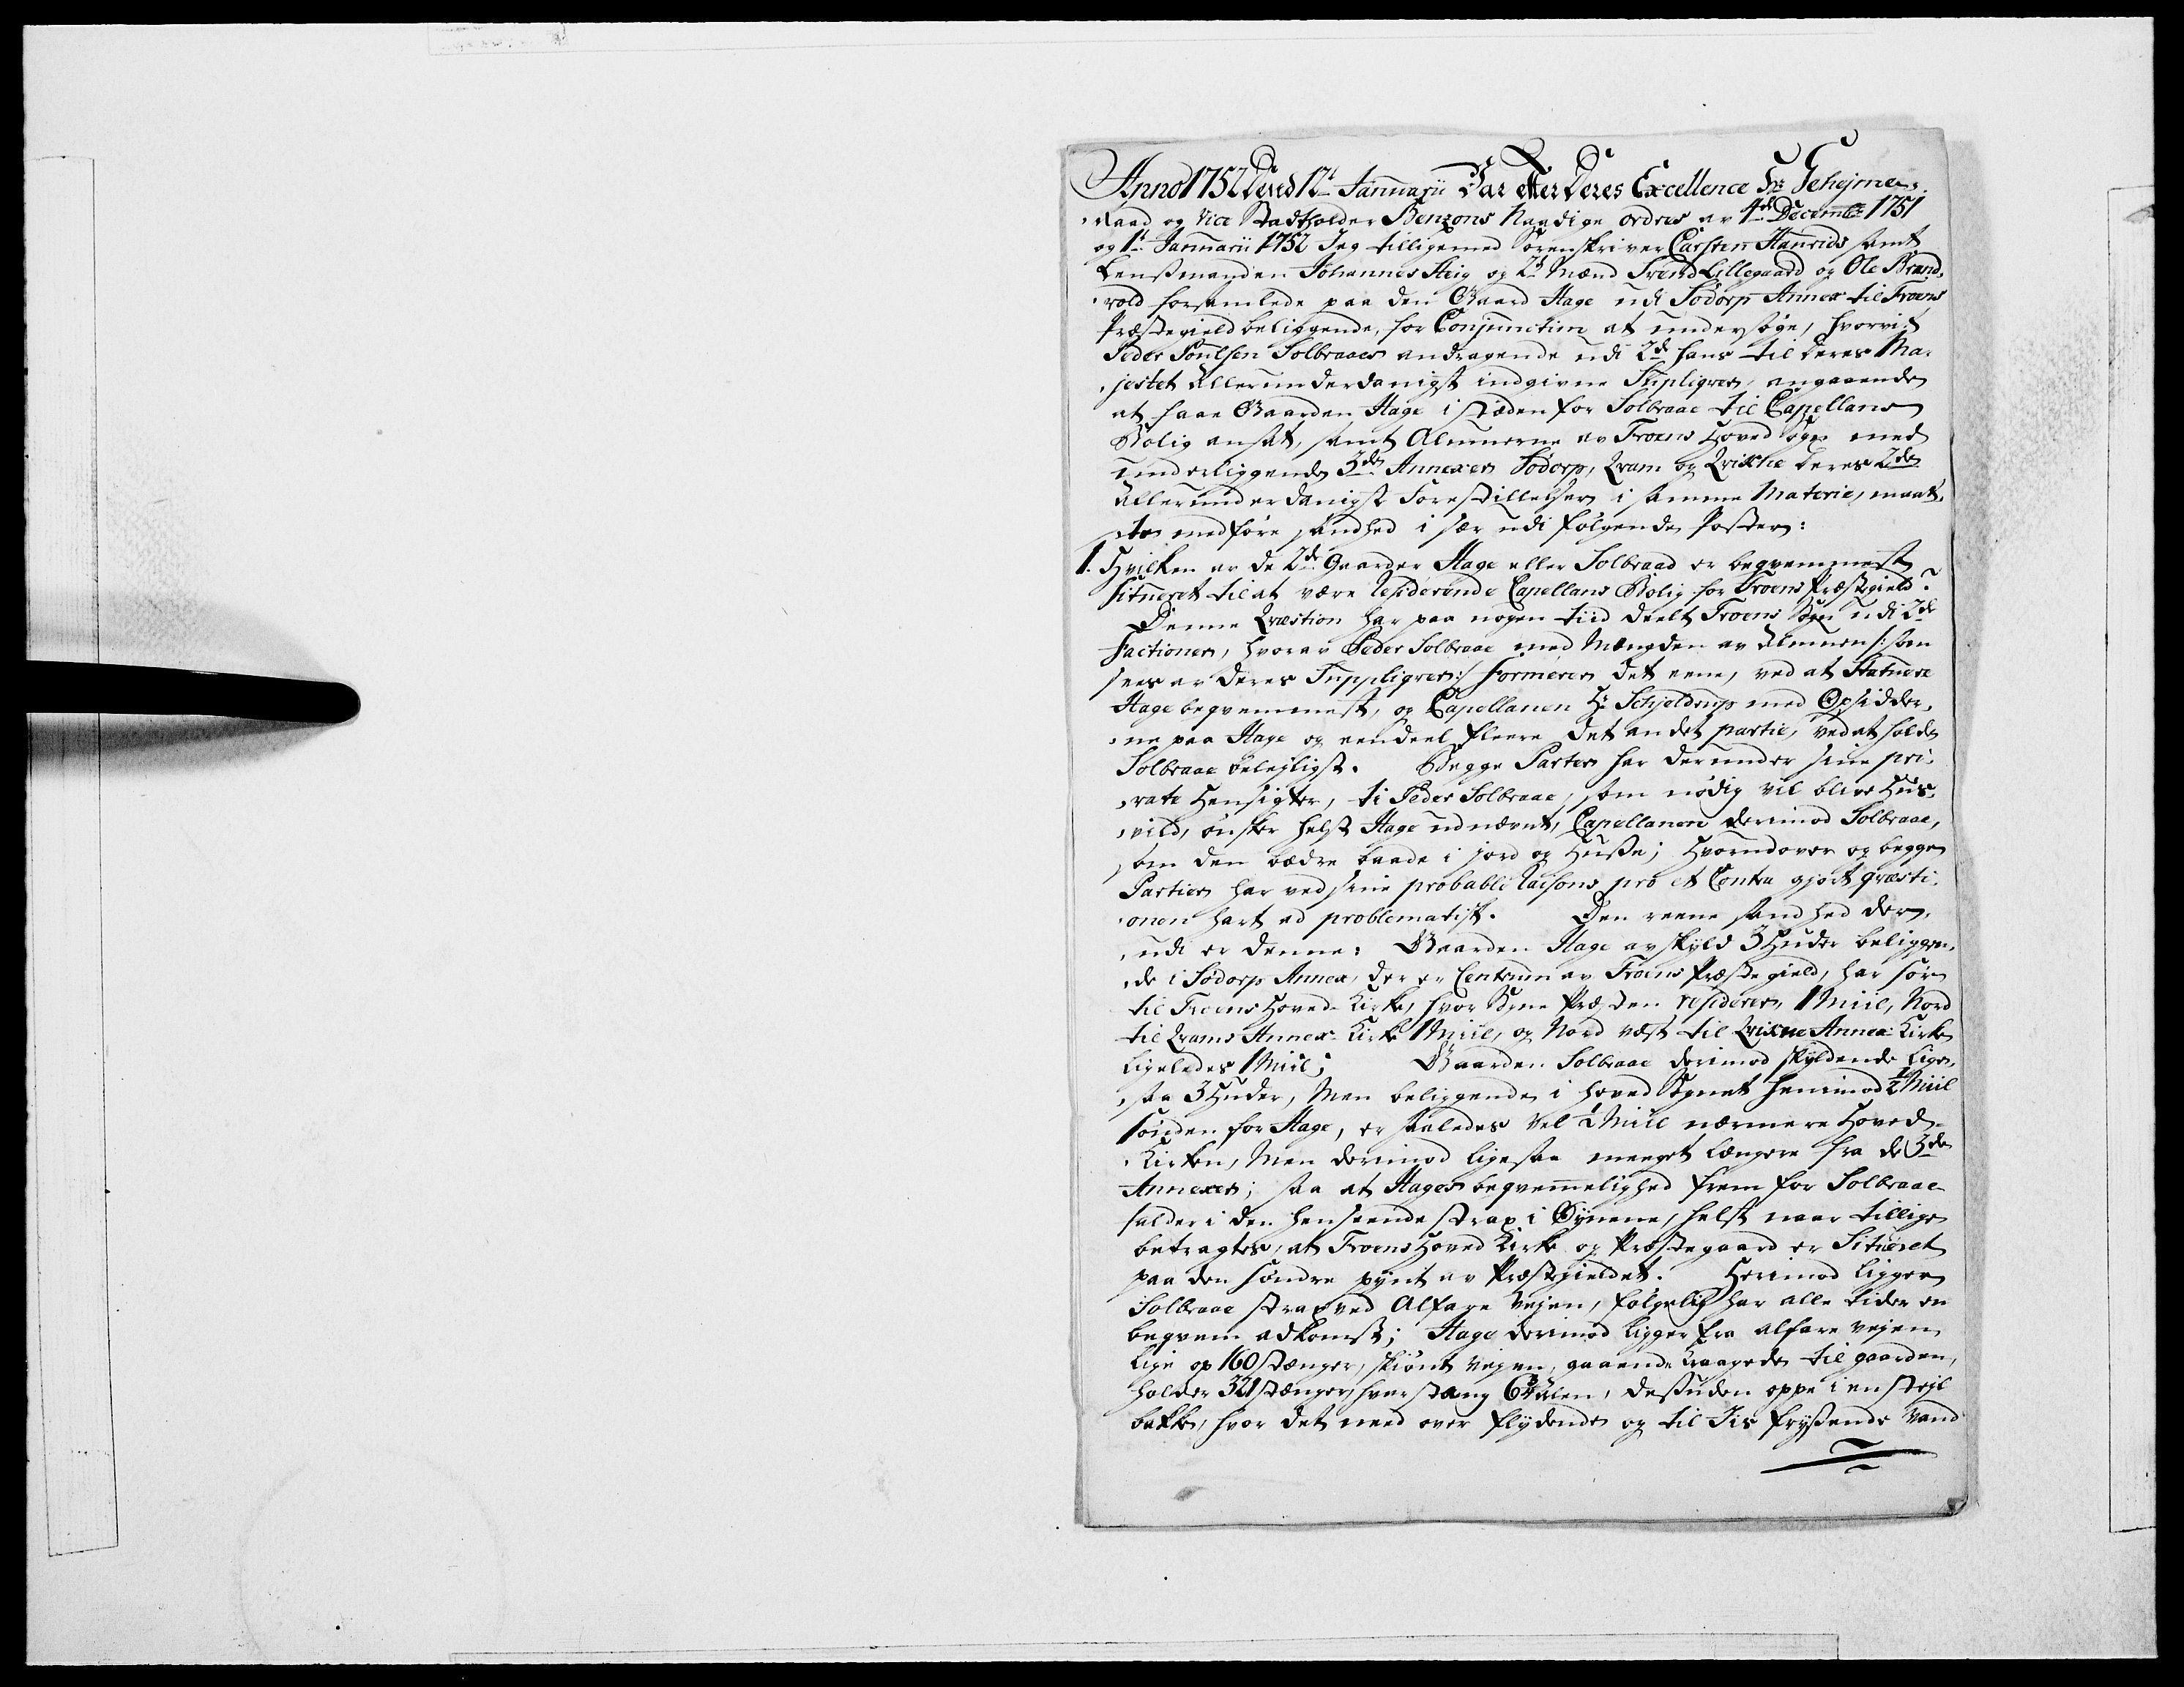 Anno 1752 Dend 12t Januarii Var efter Deres Excellence Hr: Gehejme-
raad og Vice Stadtholder Benzons Naadige ordres av 4de Decembr: 1751
og 1t Januarii 1752 Jeg tilligemed Sorenskriver Carsten Hanrids samt
Lensmanden Johannes Steig og 2de Mænd Svend Lillegaard og Ole Brand-
vold forsamlede paa den Gaard Hage udi Sødorp Annex til Froens
Præstegield beliggende, for Conjunctim at undersøge, hvorvit
Peder Poulsen Solbraaes andragende udi 2de hans til Deres Ma-
jestet Allerunderdanigst indgivne Supliqver, angaaende
at faae Gaarden Hage i stæden for Solbraae til Capellans
Bolig ansat, samt Almuerne av Froens Hoved Sogn med
underliggende 3de Annexer Sødorp, Qvam og Qvikne Deres 2de
Allerunderdanigst Forestillelser i samme Materie, maat-
te medføre sandhed i sær udi følgende Poster:
1. Hvilken av de 2de Gaarder Hage eller Solbraad er beqvemmest
Situeret til at være Residerende Capellans Bolig for Froens Præstegield?
Denne Qvæstion har paa nogen tiid deelt Froens Sogn udi 2de
Factioner, hvorav Peder Solbraae med Mængden av Almuen /: som
sees av Deres Suppliqver :/ formerer det eene, ved at Statuere
Hage beqvemmest, og Capellanen Hr Schjoldrup med Opsidder-
ne paa Hage og eendeel fleere det andet partie, ved at holde
Solbraae belejligst. Begge Parter har derunder sine pri-
vate Hensigter, ti Peder Solbraae, som nødig vil blive Huus-
vild, ønsker helst Hage udnævnt, Capellanen derimod Solbraae,
som den bædre baade i jord og Huuse; Hvorudover og begge
Partier har ved sine probable Raisons pro et Contra gjort qvæsti-
onen hart ad problematisk. Den reene sandhed der-
udi er denne: Gaarden Hage av skyld 3 Huder beliggen-
de i Sødorp Annex, der er Centrum av Froens Præstegield, har søer
til Froens Hoved-Kirke, hvor Sogne Præsten residerer, 1 Miil, Nord
til Qvams Annex-Kirke 1 Miil, og Nord væst til Qvikne Annex Kirke
ligeledes 1 Miil; Gaarden Solbraae derimod skyldende lige-
saa 3 Huder, Men beliggende i Hoved Sognet henimod ½ Miil
sønden for Hage, er saaledes vel ½ Miil nærmere Hoved-
Kirken, Men derimod ligesaa meeget længere fra de 3de
Annexer; saa at Hages beqvemmelighed frem for Solbraae
falder i den henseende strax i Øynene, helst naar tillige
betragtes, at Froens Hoved Kirke og Præstegaard er Situeret
paa den søndre pynt av Præstegieldet. Herimod ligger
Solbraae strax ved Alfare Vejen, følgelig har alle tider en
beqvem adkomst; Hage derimod ligger fra alfare vejen
lige op 160 stænger, skiønt Vejen, gaaende Kraagede til gaarden,
holder 321 stænger, hver stang 6¾ alen, desuden oppe i en stejl
bakke, hvor det need over flydende og til Iis frysende Vand